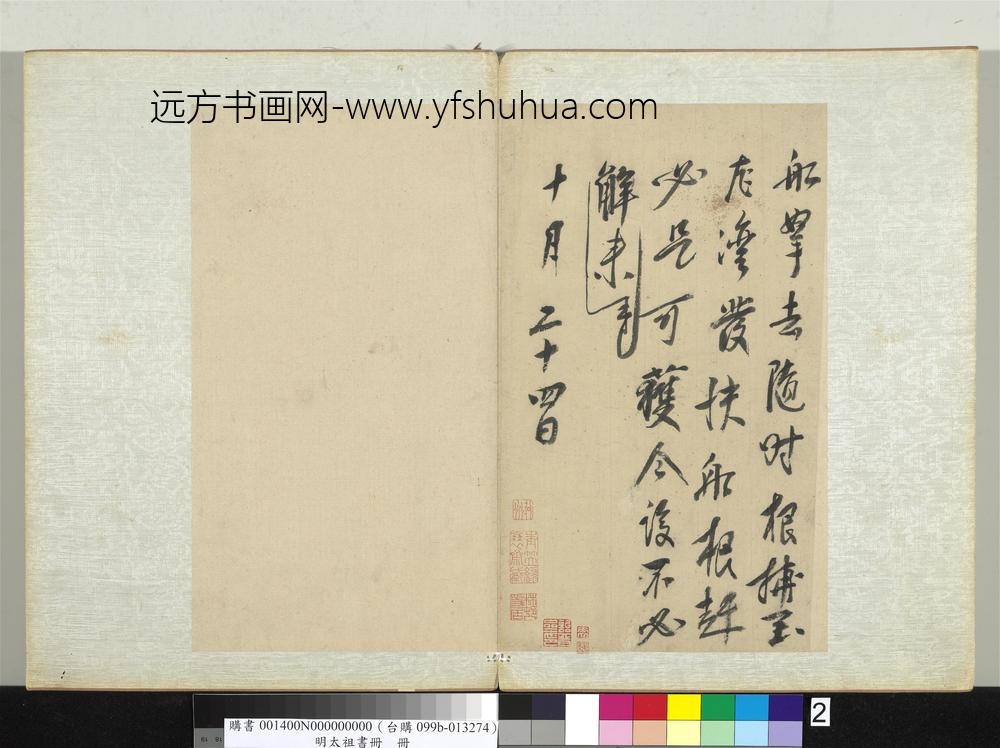 远方书画网-www.yfshuhua.com
船拏去隨时根捕至
左灣發扶船根趕
必是可獲今後不必
解來
十月二十四日
購書 001400N000000000 (台購 099b-013274)
明太祖書冊 冊
2